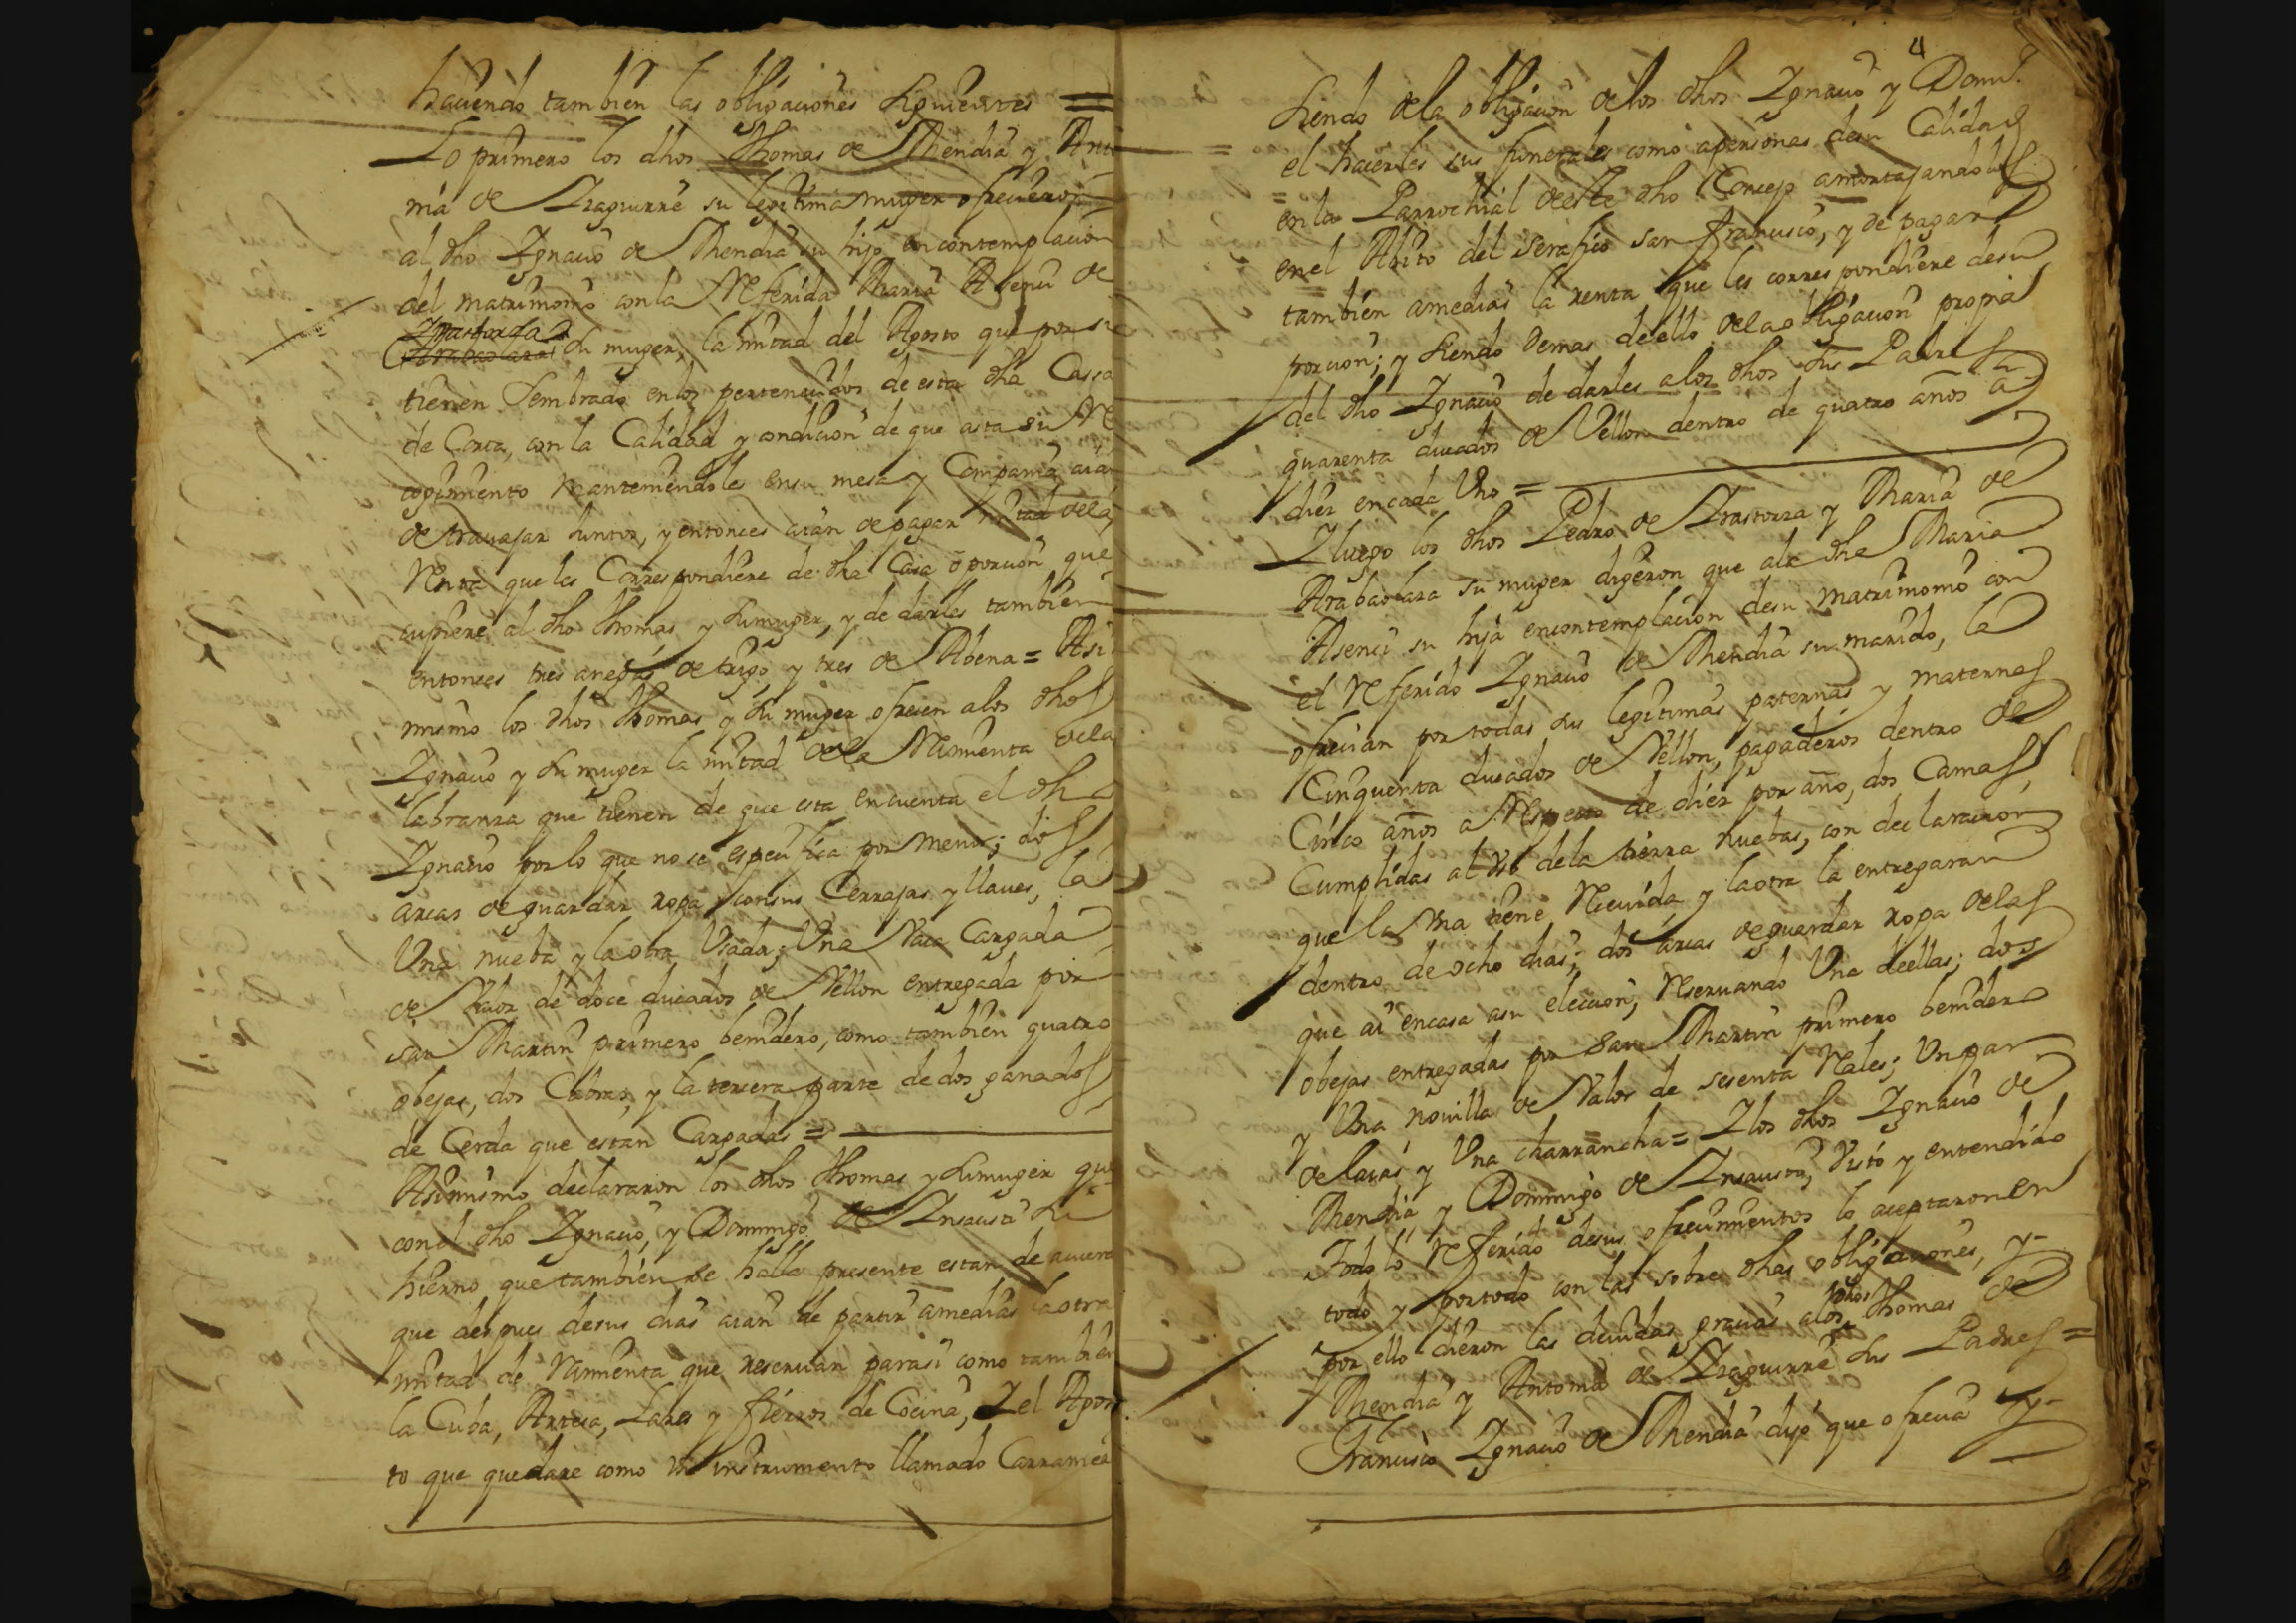 haciendo tambien las obligaciones siguientes =
Lo primero los dhos Thomas de Mendia y Anto
nia de Yraguirre su legitima muger ofrecieron
al dho Ygnacio de Mendia su hijo en contemplacion
del matrimonio con la Referida Maria Asencia de
Yrastorza
su muger, la mitad del Agosto que por si
tienen sembrado en los pertenecidos de esta dha Cassa
de Corta, con la Calidad y condicion de que asta su Re
cogimiento manteniendoles en su mesa y Compania aian
de travajar juntos, y entonces aian de pagar mitad de la
Renta que les Correspondiere de dha Casa o porcion que
cupiere al dho Thomas y su muger, y de darles tambien
entonces tres anegas de trigo y tres de Abena = Asi
mismo los dhos Thomas y su muger ofrecen a los dhos
Ygnacio y su muger la mitad de la Ramienta de la
labranza que tienen de que esta en cuenta el dho
Ygnacio por lo que no se especifica por menor; dos
arcas de guardar ropa con sus Cerrajas y llaves, la
Una nueba y la otra Usada; Una Vaca Cargada
de Valor de doce ducados de Vellon entregada por
san Martin primero benidero, como tambien quatro
obejas, dos Cabras, y la tercera parte de dos ganados
de Cerda que estan Cargadas =
Asimismo declararon los dhos Thomas y su muger que
con el dho Ygnacio, y Domingo de Ynsausti su
hierno que tambien se halla presente estan de acuerdo
que despues de sus dias aian de partir a medias la otra
mitad de Ramienta que reservan para si como tambien
la Cuba, Artesa, Lares y fierros de Cocina, Y el Agos
to que quedare como un instrumento llamado Carramea
4
siendo de la obligacion de los dhos Ygnacio y Domo
el hacerles sus funerales como a personas de su Calidad
en la Parrochial de este dho Concejo amortajandoles
en el Abito del Serafico san francisco, y de pagar
tambien a medias la renta que les correspondiere de su
porcion; y siendo demas de ello de la obligacion propia
del dho Ygnacio de darles a los dhos sus Padres
quarenta ducados de Vellon dentro de quatro años a
diez en cada Uno =
Y luego los dhos Pedro de Yrastorza y Maria de
Arabaolaza su muger digeron que a la dha Maria
Asencia su hija en contemplacion de su matrimonio con
el Referido Ygnacio de Mendia su marido, la
ofrecian por todas sus legitimas paternas y maternas
Cinquenta ducados de Vellon, pagaderos dentro de
Cinco años a Respecto de diez por año, dos Camas
Cumplidas al Uso de la tierra nuebas, con declaracion
que la Una tiene Recivida y la otra la entregaran
dentro de ocho dias; dos arcas de guardar ropa de las
que ai en casa a su eleccion, Reservando Una de ellas; dos
obejas entregadas por San Martin primero benidero
y Una novilla de Valor de sesenta Rales; Un par
de laias y Una charrancha = Y los dhos Ygnacio de
Mendia y Domingo de Ynsausti, Visto y entendido
Todo lo Referido de sus ofrecimientos lo aceptaron en
todo y por todo con las sobre dhas obligaciones, y
por ello dieron las devidas gracias a los dhos Thomas de
Mendia y Antonia de Yraguirre sus Padres =
Francisco Ygnacio de Mendia dijo que ofrecia y